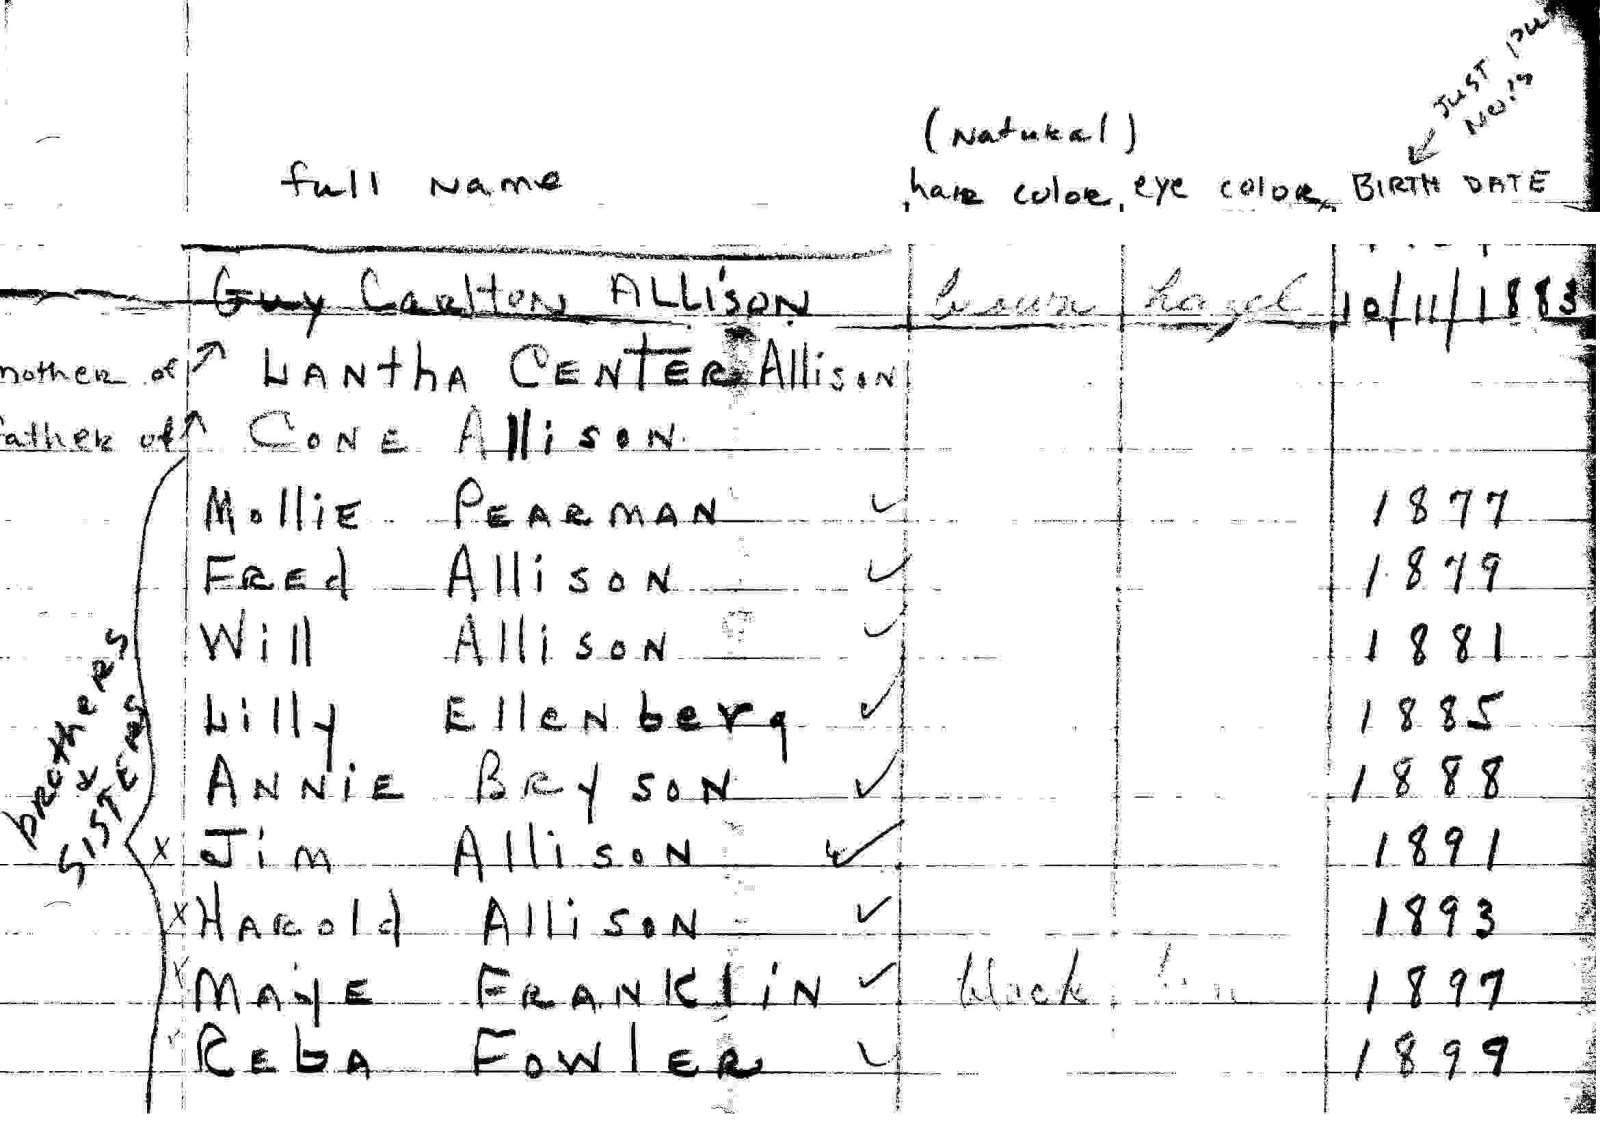 JUST PU
No.'s
(Natural)
full Name hair color eye color BIRTH DATE
Guy Carlton ALLISON brown hazel 10/11/1883
mother of LANthA CENTER Allison
father of CONE Allison
Mollie PEARMAN ✓ 1877
FREd Allison ✓ 1879
Will Allison ✓ 1881
Lilly EllenBerg ✓ 1885
ANNiE BRySON ✓ 1888
x Jim Allison ✓ 1891
x HARold Allison ✓ 1893
x MAyE FRANKliN ✓ black 1897
REbA FowlER ✓ 1899
brothers
&
SISTERS